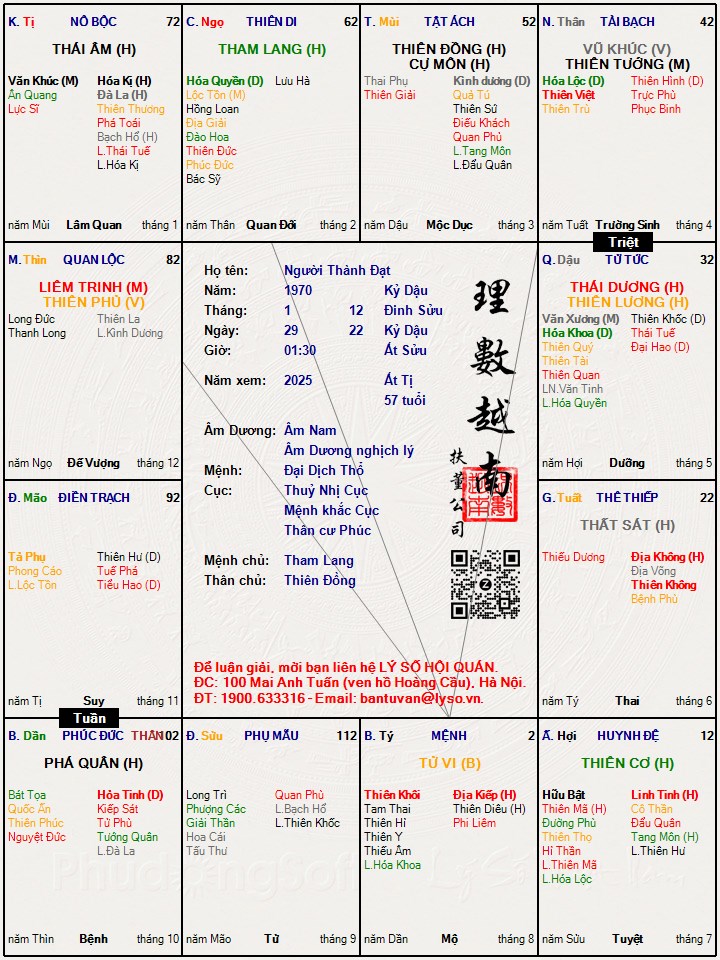 K. Tị NÔ BỘC 72
THÁI ÂM (H)
Văn Khúc (M) Hóa Kị (H)
Ân Quang Đà La (H)
Lực Sĩ Thiên Thương
Phá Toái
Bạch Hổ (H)
L.Thái Tuế
L.Hóa Kị
năm Mùi Lâm Quan tháng 1
C. Ngọ THIÊN DI 62
THAM LANG (H)
Hóa Quyền (D) Lưu Hà
Lộc Tồn (M)
Hồng Loan
Địa Giải
Đào Hoa
Thiên Đức
Phúc Đức
Bác Sỹ
năm Thân Quan Đới tháng 2
T. Mùi TẬT ÁCH 52
THIÊN ĐỒNG (H)
CỰ MÔN (H)
Thai Phụ Kình dương (D)
Thiên Giải Quả Tú
Thiên Sứ
Điếu Khách
Quan Phủ
L.Tang Môn
L.Đẩu Quân
năm Dậu Mộc Dục tháng 3
N. Thân TÀI BẠCH 42
VŨ KHÚC (V)
THIÊN TƯỚNG (M)
Hóa Lộc (D) Thiên Hình (D)
Thiên Việt Trực Phù
Thiên Trù Phục Binh
năm Tuất Trường Sinh tháng 4
Triệt
M. Thìn QUAN LỘC 82
LIÊM TRINH (M)
THIÊN PHỦ (V)
Long Đức Thiên La
Thanh Long L.Kình Dương
năm Ngọ Đế Vượng tháng 12
Họ tên: Người Thành Đạt
Năm: 1970 Kỷ Dậu
Tháng: 1 12 Đinh Sửu
Ngày: 29 22 Kỷ Dậu
Giờ: 01:30 Ất Sửu
Năm xem: 2025 Ất Tị
57 tuổi
Âm Dương: Âm Nam
Âm Dương nghịch lý
Mệnh: Đại Dịch Thổ
Cục: Thuỷ Nhị Cục
Mệnh khắc Cục
Thân cư Phúc
Mệnh chủ: Tham Lang
Thân chủ: Thiên Đồng
理數越南
扶董公司
Để luận giải, mời bạn liên hệ LÝ SỐ HỘI QUÁN.
ĐC: 100 Mai Anh Tuấn (ven hồ Hoàng Cầu), Hà Nội.
ĐT: 1900.633316 - Email: bantuvan@lyso.vn.
Q. Dậu TỬ TỨC 32
THÁI DƯƠNG (H)
THIÊN LƯƠNG (H)
Văn Xương (M) Thiên Khốc (D)
Hóa Khoa (D) Thái Tuế
Thiên Quý Đại Hao (D)
Thiên Tài
Thiên Quan
LN.Văn Tinh
L.Hóa Quyền
năm Hợi Dưỡng tháng 5
Đ. Mão ĐIỀN TRẠCH 92
Tả Phụ Thiên Hư (D)
Phong Cáo Tuế Phá
L.Lộc Tồn Tiểu Hao (D)
năm Tị Suy tháng 11
G. Tuất THÊ THIẾP 22
THẤT SÁT (H)
Thiếu Dương Địa Không (H)
Địa Võng
Thiên Không
Bệnh Phù
năm Tý Thai tháng 6
Tuần
B. Dần PHÚC ĐỨC THÂN 102
PHÁ QUÂN (H)
Bát Tọa Hỏa Tinh (D)
Quốc Ấn Kiếp Sát
Thiên Phúc Tử Phù
Nguyệt Đức Tướng Quân
L.Đà La
năm Thìn Bệnh tháng 10
Đ. Sửu PHỤ MẪU 112
Long Trì Quan Phù
Phượng Các L.Bạch Hổ
Giải Thần L.Thiên Khốc
Hoa Cái
Tấu Thư
năm Mão Tử tháng 9
B. Tý MỆNH 2
TỬ VI (B)
Thiên Khôi Địa Kiếp (H)
Tam Thai Thiên Diêu (H)
Thiên Hỉ Phi Liêm
Thiên Y
Thiếu Âm
L.Hóa Khoa
năm Dần Mộ tháng 8
Ấ. Hợi HUYNH ĐỆ 12
THIÊN CƠ (H)
Hữu Bật Linh Tinh (H)
Thiên Mã (H) Cô Thần
Đường Phù Đẩu Quân
Thiên Thọ Tang Môn (H)
Hỉ Thần L.Thiên Hư
L.Thiên Mã
L.Hóa Lộc
năm Sửu Tuyệt tháng 7